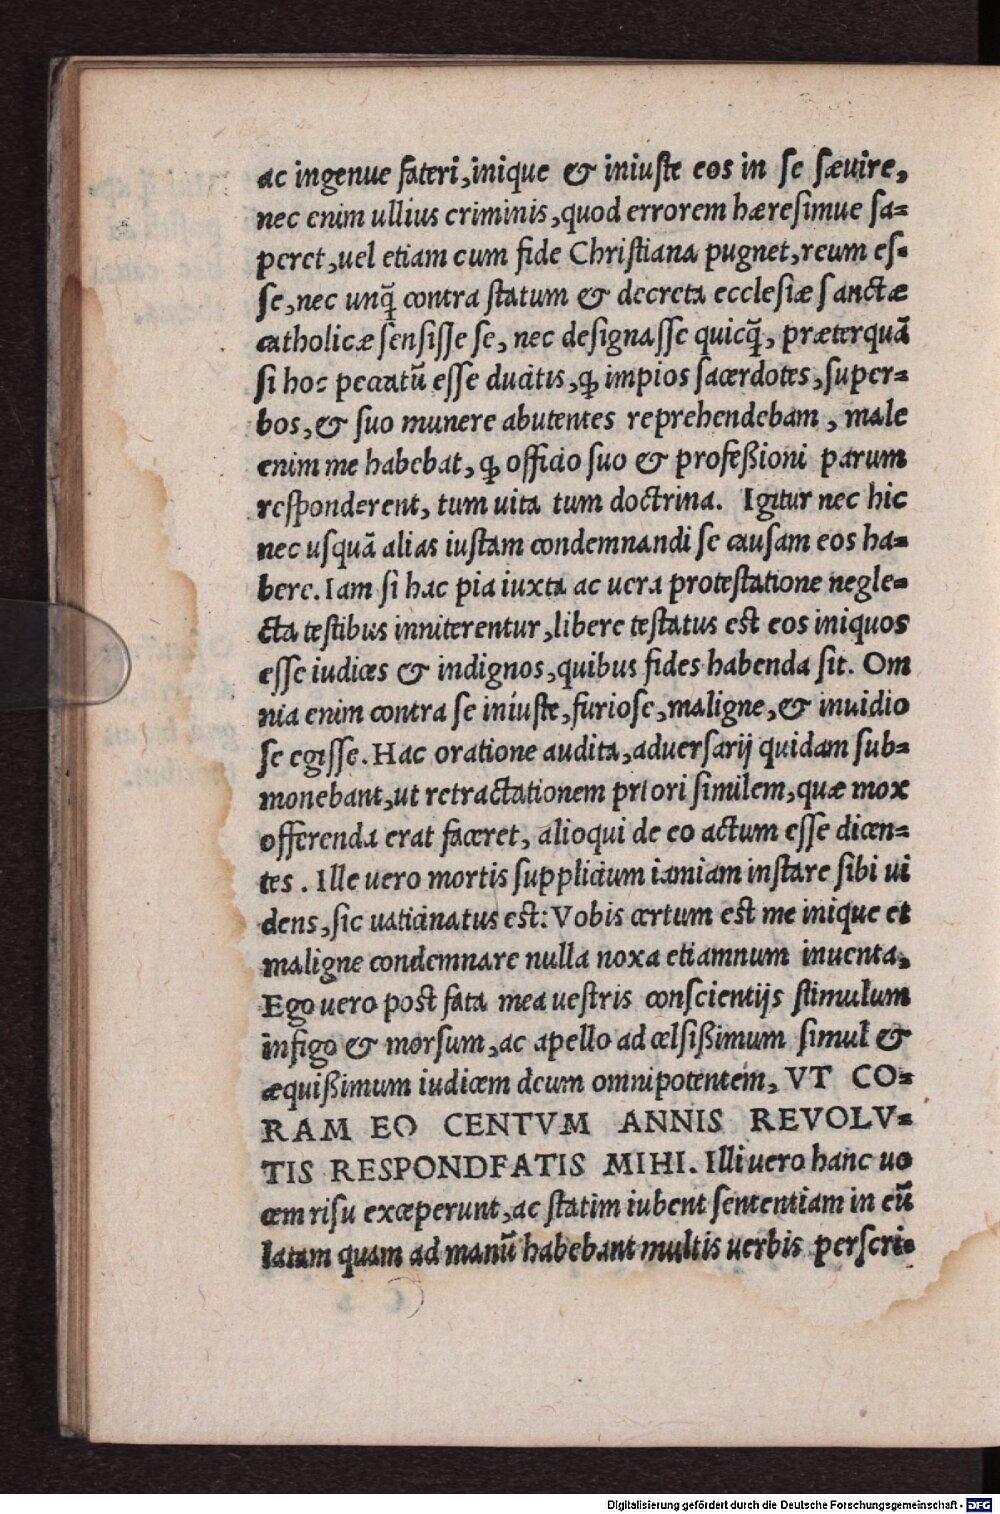 ac ingenue fateri, inique & iniuſte eos in ſe ſæuire,
nec enim ullius criminis, quod errorem hæreſimue ſa=
peret, uel etiam cum fide Chriſtiana pugnet, reum eſ=
ſe, nec unq̃ contra ſtatum & decreta eccleſiæ ſanctæ
catholicæ ſenſiſſe ſe, nec deſignaſſe quicq̃, præterquã
ſi hoc peccatũ eſſe ducitis, ꝙ impios ſacerdotes, ſuper=
bos, & ſuo munere abutentes reprehendebam, male
enim me habebat, ꝙ officio ſuo & profeßioni parum
reſponderent, tum uita tum doctrina. Igitur nec hic
nec uſquã alias iuſtam condemnandi ſe cauſam eos ha=
bere. Iam ſi hac pia iuxta ac uera proteſtatione negle=
cta teſtibus inniterentur, libere teſtatus eſt eos iniquos
eſſe iudices & indignos, quibus fides habenda ſit. Om
nia enim contra ſe iniuſte, furioſe, maligne, & inuidio
ſe egiſſe. Hac oratione audita, aduerſarij quidam ſub=
monebant, ut retractationem priori ſimilem, quæ mox
offerenda erat faceret, alioqui de eo actum eſſe dicen=
tes. Ille uero mortis ſupplicium iamiam inſtare ſibi ui
dens, ſic uaticinatus eſt: Vobis certum eſt me inique et
maligne condemnare nulla noxa etiamnum inuenta,
Ego uero poſt fata mea ueſtris conſcientijs ſtimulum
infigo & morſum, ac apello ad celſißimum ſimul &
æquißimum iudicem deum omnipotentem, VT CO=
RAM EO CENTVM ANNIS REVOLV=
TIS RESPONDEATIS MIHI. Illi uero hanc uo
cem riſu exceperunt, ac ſtatim iubent ſententiam in eũ
latam quam ad manũ habebant multis uerbis perſcri=
Digitalisierung gefördert durch die Deutsche Forschungsgemeinschaft - DFG